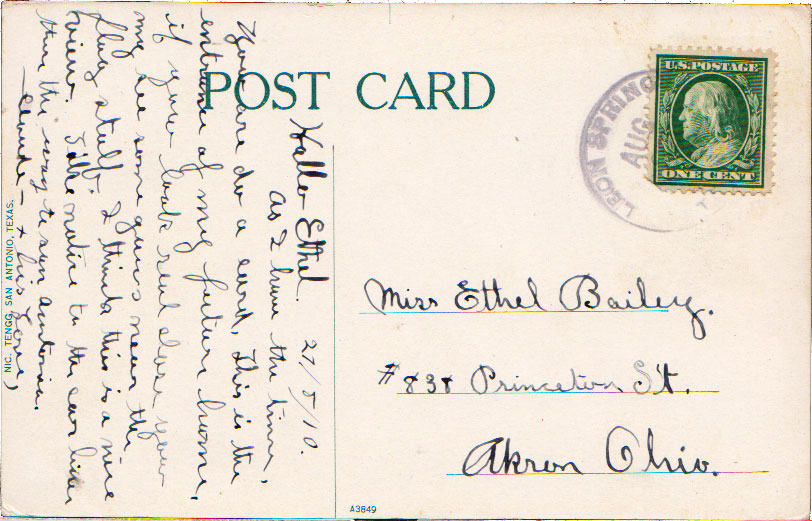 POST CARD
U.S. POSTAGE
ONE CENT
LEON SPRING
AUG
Hallo Ethel. 27/8/10.
As I have the time,
You are do a card, This is the
entrance of my future home,
if you look real close, you
may see some guns near the
flag staff. I think this is a nice
view. Take notice to the car
the way to san antonia.
Claude - + his love,
Miss Ethel Bailey.
#838 Princeton St.
Akron Ohio.
NIC. TENGG, SAN ANTONIO, TEXAS.
A3849